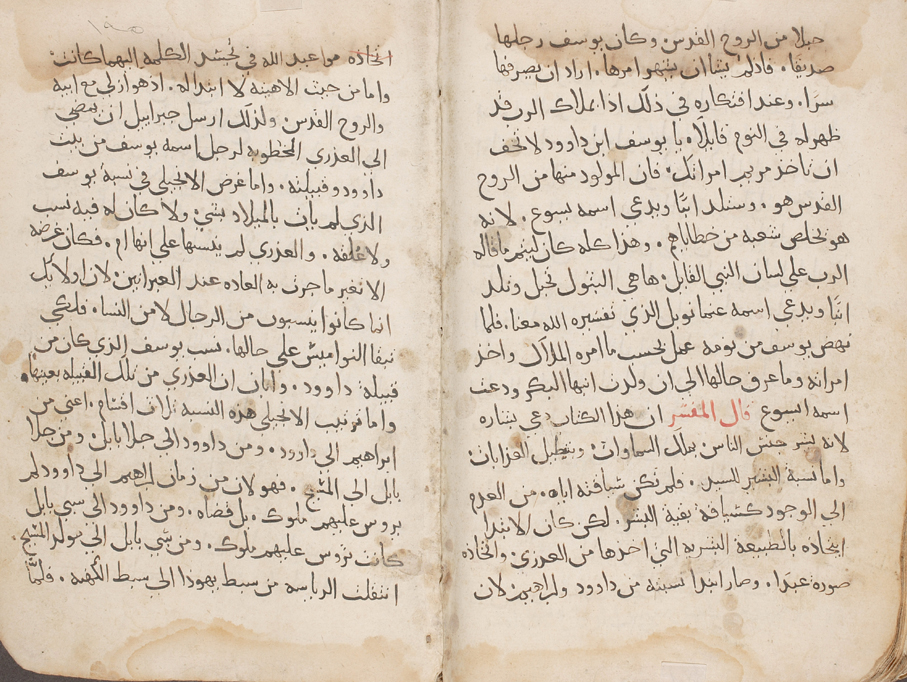 حبلا من الروح القدس. وكان يوسف رجلها
صديقا. فاذ لم يشا ان يشهر امرها. اراد ان يصرفها
سرًا. وعند افتكاره في ذلك اذا بملاك الرب قد
ظهر له في النوم قايلًا. يا يوسف ابن داوود لا تخف
ان تاخذ مريم امراتك. فان المولود منها من الروح
القدس هو. وستلد ابنًا ويدعي اسمه يسوع. لانه
هو يخلص شعبه من خطاياهم. وهذا كله كان ليتم ما قاله
الرب علي لسان النبي القايل. ها هي البتول تحبل وتلد
ابنًا ويدعي اسمه عمانويل الذي تفسيره الله معنا. فلما
نهض يوسف من نومه عمل بحسب ما امره الملاك واخذ
امراته وما عرف حالها الي ان ولدت ابنها البكر ودعت
اسمه ايسوع قال المفسر ان هذا الكتاب دعي بشاره
لانه بشر جنس الناس بملك السماوات. وبتبطيل العذابات.
واما نسبة البشير للسيد. فلم تكن سياقته اياه. من العدم
الي الوجود كسياقة بقية البشر. لكن كان الابتدا
ايخاذه بالطبيعة البشريه التي اخذها من العذري. واتخاذه
صورة عبدًا. وصار ابتدا نسبته من داوود وابراهيم. لان
اتخاذه مواعيد الله في تجسد الكلمه اليهما كانت.
واما من حيث الاهيته لا ابتدا له. اذ هو ازلي مع ابيه
والروح القدس. ولذلك ارسل جبراييل ان يمضي
الي العذري المخطوبه لرجل اسمه يوسف من بيت
داوود وقبيلته. واما غرض الانجيلي في نسبة يوسف
الذي لم يات بالميلاد بشي. ولا كان له فيه نسب
ولا علقه. والعذري لم ينسبها علي انها ام. فكان غرضه
الا تغير ما جرت به العاده عند العبرانيين. لان اولايك
انما كانوا ينسبون من الرجال لا من النسا. فلكي
تبقا النواميس علي حالها. نسب يوسف الذي كان من
قبيلة داوود. وابان ان العذري من تلك القبيله بعينها.
واما ترتيب الانجيلي هذه النسبة ثلاث اقسام. اعني من
ابراهيم الي داوود. ومن داوود الي جلا بابل. ومن جلا
بابل الي المسيح. فهو لان من زمان ابراهيم الي داوود لم
يروس عليهم ملوك. بل قضاه. ومن داوود الي سبي بابل
كانت تروس عليهم ملوك. ومن سبي بابل الي مولد المسيح.
انتقلت الرياسه من سبط يهودا الي سبط الكهنه. فلمّا